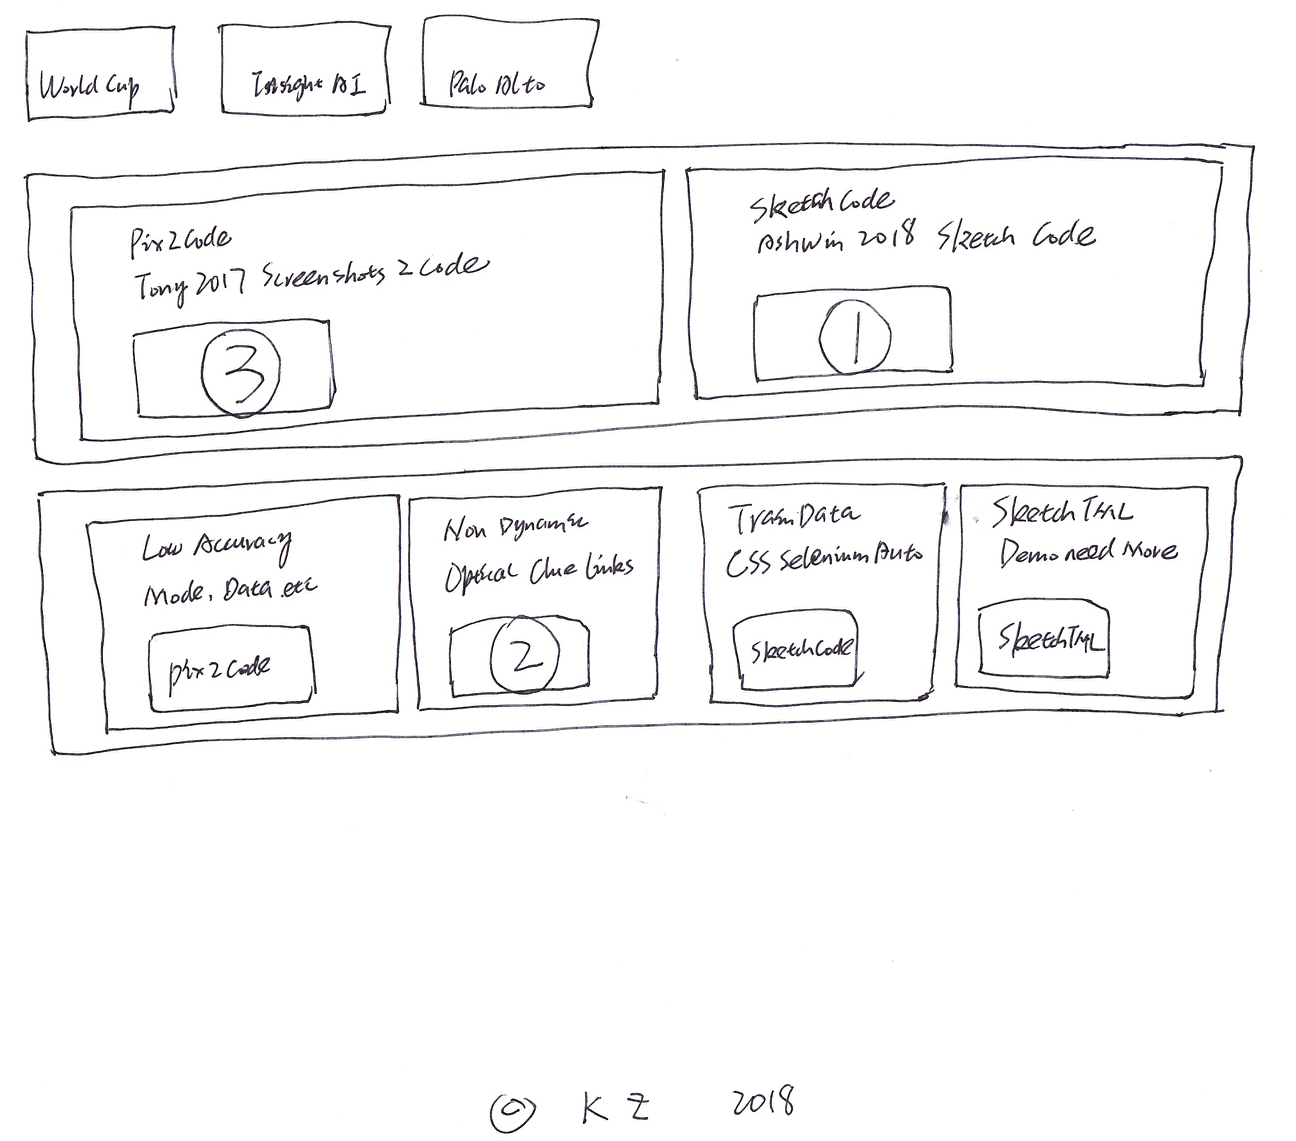 World Cup
Insight AI
Palo Alto
Pix2Code
Tony 2017 Screenshots 2 Code
3
SketchCode
Ashwin 2018 Sketch Code
1
Low Accuracy
Mode, Data.etc
pix2code
Non Dynamic
Optical Clue Links
2
TrainData
CSS Selenium Auto
SketchCode
SketchTML
Demo need More
SketchTML
© KZ 2018